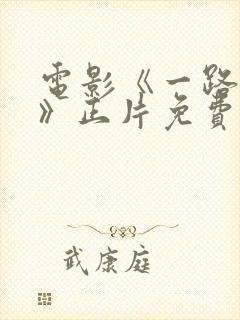 電影《一路
》正片免費
武康庭